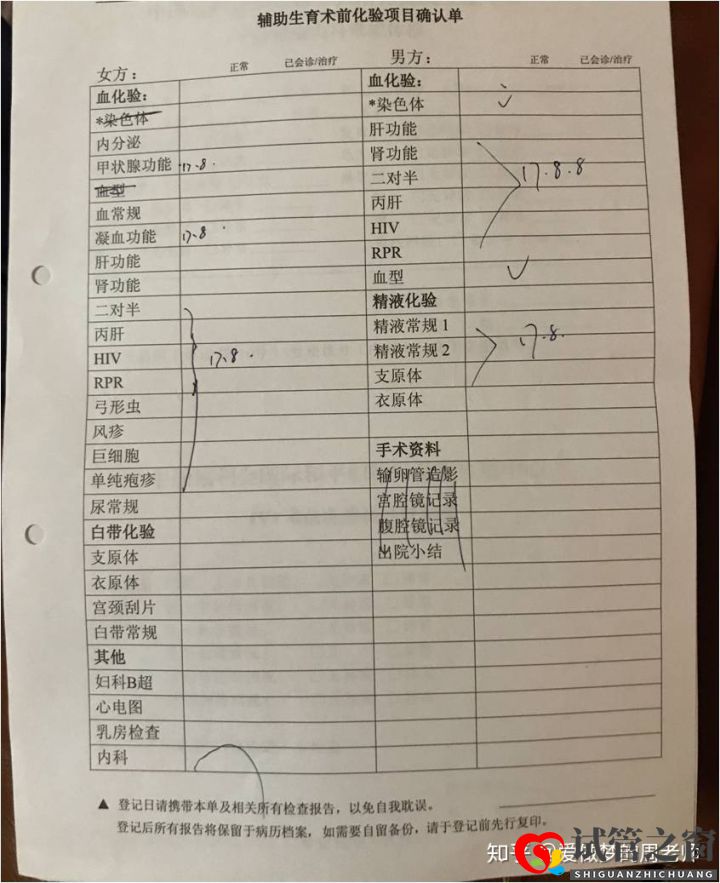 辅助生育术前化验项目确认单
女方： 正常 已会诊/治疗 男方： 正常 已会诊/治疗
血化验： 血化验：
*染色体 *染色体 ✓
内分泌 肝功能
甲状腺功能 17.8. 肾功能
血型 二对半 17.8.8
血常规 丙肝
凝血功能 17.8. HIV
肝功能 RPR
肾功能 血型 ✓
二对半 精液化验
丙肝 精液常规 1
HIV 17.8. 精液常规 2 17.8.
RPR 支原体
弓形虫 衣原体
风疹
巨细胞 手术资料
单纯疱疹 输卵管造影
尿常规 宫腔镜记录
白带化验 腹腔镜记录
支原体 出院小结
衣原体
宫颈刮片
白带常规
其他
妇科B超
心电图
乳房检查
内科
▲ 登记日请携带本单及相关所有检查报告，以免自我耽误。
登记后所有报告将保留于病历档案，如需要自留备份，请于登记前先行复印。
知乎 @爱做梦的周老师
试管之窗
SHIGUANZHICHUANG